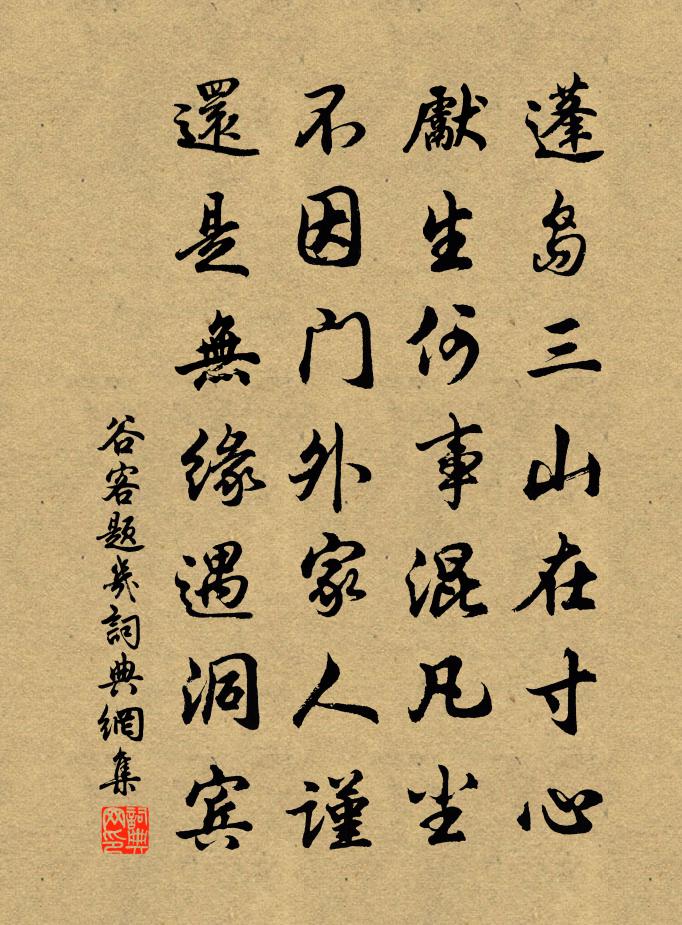 蓬岛三山在寸心
獻生何事混凡尘
不因门外家人謹
還是無緣遇洞宾
谷客题幾詞典網集
詞典网印